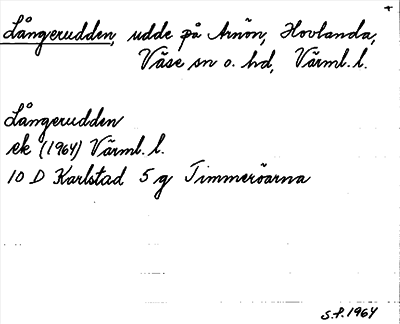 Långerudden, udde på Arnön, Hovlanda,
Väse sn o. hd, Värml. l.
Långerudden
ek (1964) Värml. l.
10 D Karlstad 5 g Timmeröarna
S.P. 1964